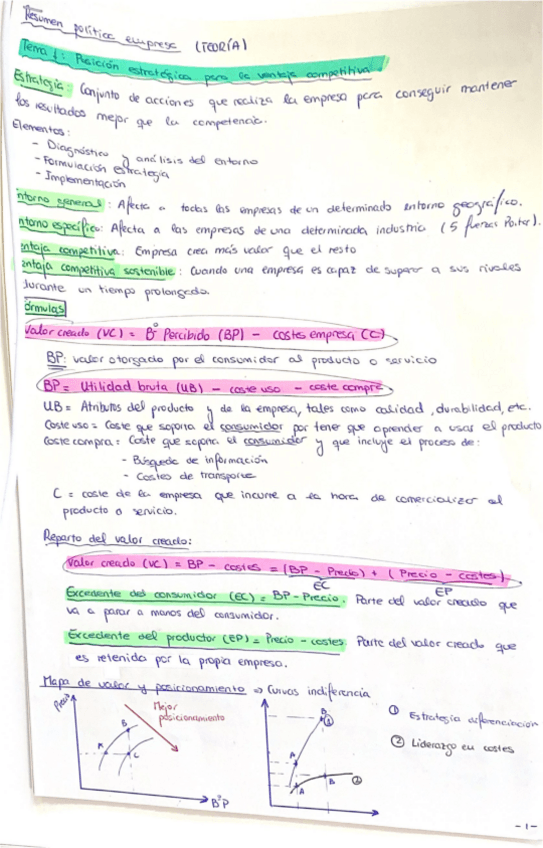 Resumen política empresa (TEORÍA)
Tema 1: Posición estratégica para la ventaja competitiva.
Estrategia: Conjunto de acciones que realiza la empresa para conseguir mantener
los resultados mejor que la competencia.
Elementos:
- Diagnóstico y análisis del entorno
- Formulación estrategia
- Implementación
ntorno general: Afecta a todas las empresas de un determinado entorno geográfico.
ntorno específico: Afecta a las empresas de una determinada industria (5 fuerzas Porter).
entaja competitiva: Empresa crea más valor que el resto
entaja competitiva sostenible: Cuando una empresa es capaz de superar a sus rivales
durante un tiempo prolongado.
órmulas
Valor creado (VC) = Bº Percibido (BP) - costes empresa (C)
BP: valor otorgado por el consumidor al producto o servicio
BP = Utilidad bruta (UB) - coste uso - coste compra
UB = Atributos del producto y de la empresa, tales como calidad, durabilidad, etc.
Coste uso = Coste que soporta el consumidor por tener que aprender a usar el producto
Coste compra = Coste que soporta el consumidor y que incluye el proceso de:
- Búsqueda de información
- Costes de transporte
C = coste de la empresa que incurre a la hora de comercializar el
producto o servicio.
Reparto del valor creado:
Valor creado (VC) = BP - costes = (BP - Precio) + (Precio - costes)
EC EP
Excedente del consumidor (EC) = BP - Precio. Parte del valor creado que
va a parar a manos del consumidor.
Excedente del productor (EP) = Precio - costes. Parte del valor creado que
es retenida por la propia empresa.
Mapa de valor y posicionamiento => Curvas indiferencia
Precio
Mejor
posicionamiento
A B C
BºP
B ①
A
A B ②
① Estrategia diferenciación
② Liderazgo en costes
-1-